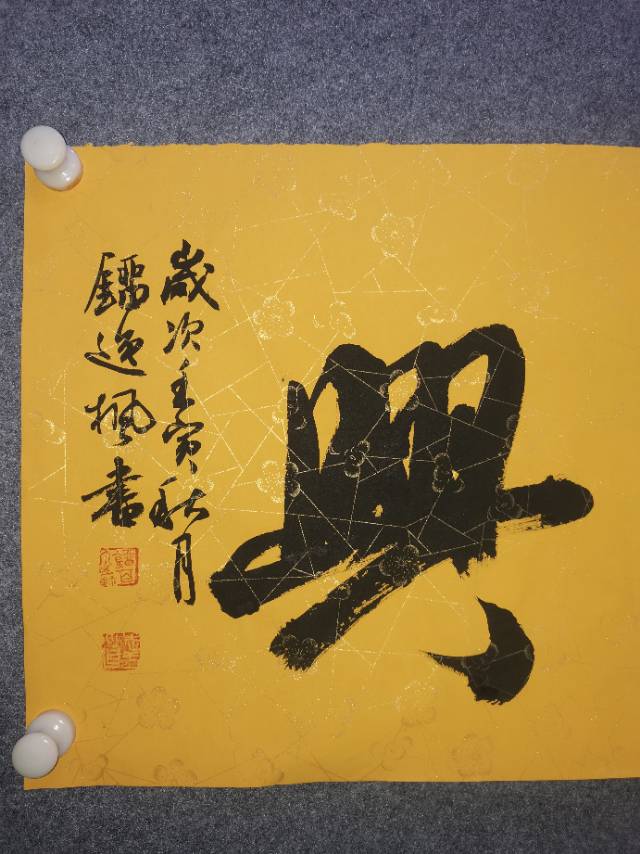 興
歲次壬寅秋月
鎦逸楓書